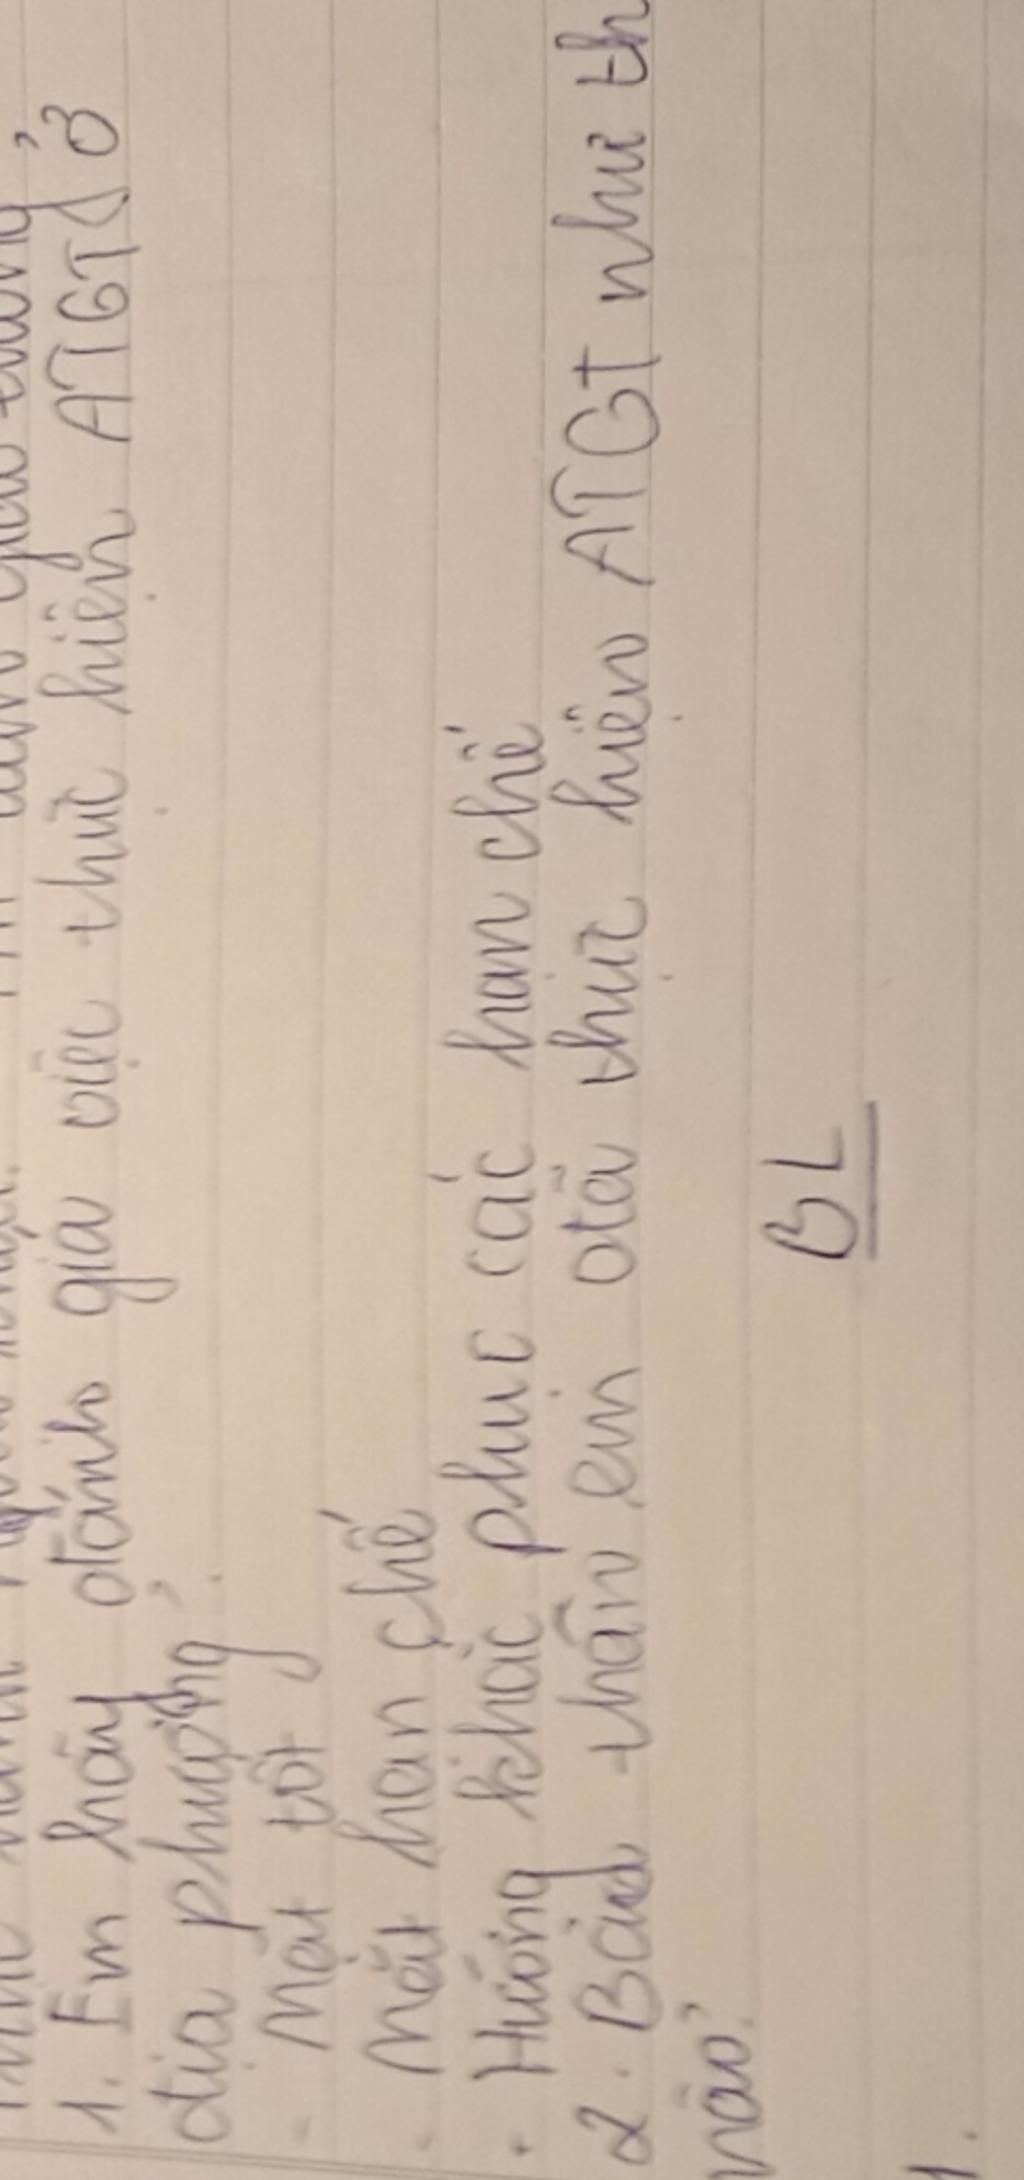 1. Em hãy đánh giá việc thực hiện ATGT ở
địa phương
- Mặt tốt
- Mặt hạn chế
- Hướng khắc phục các hạn chế
2. Bản thân em đã thực hiện ATGT như th
nào?
BL
1.